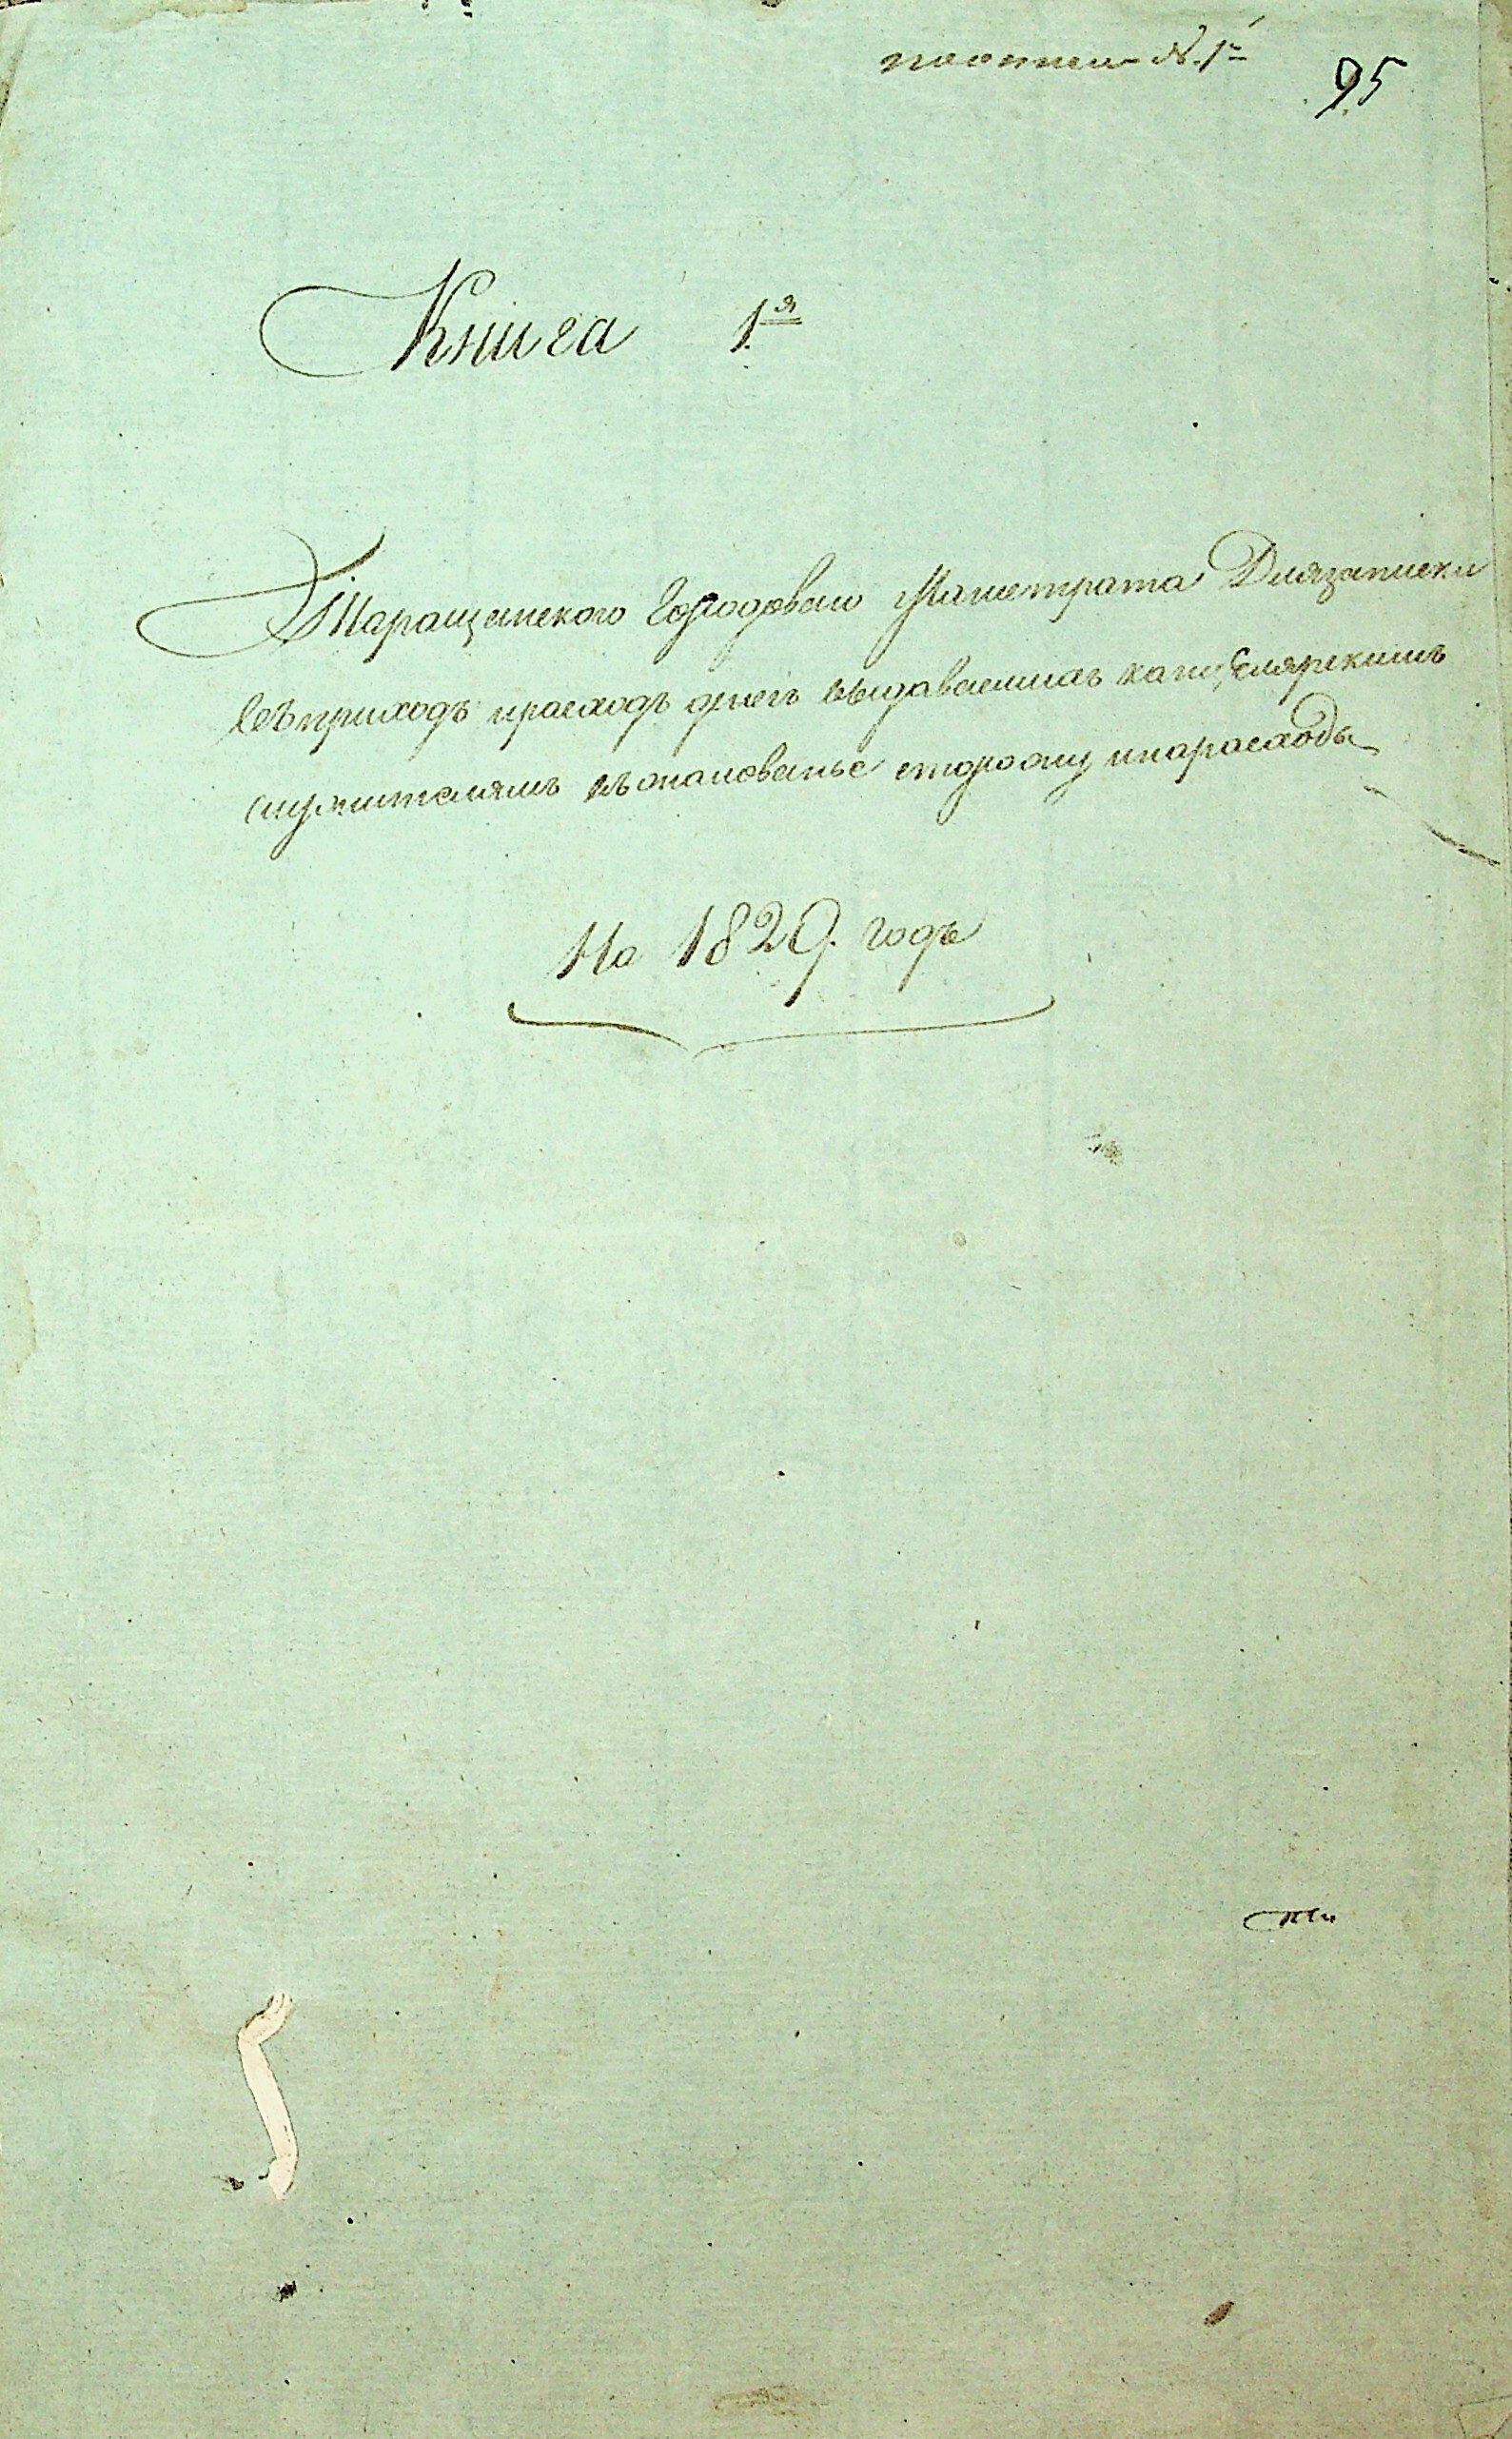 по описи № 1й
95
Книга 1я
Таращанского Городоваго Магистрата Длязаписки
въприходъ ирасходъ денегъ выдаваемыхъ канцелярскимъ
служителямъ сторожу инарасходы
На 1829. годъ